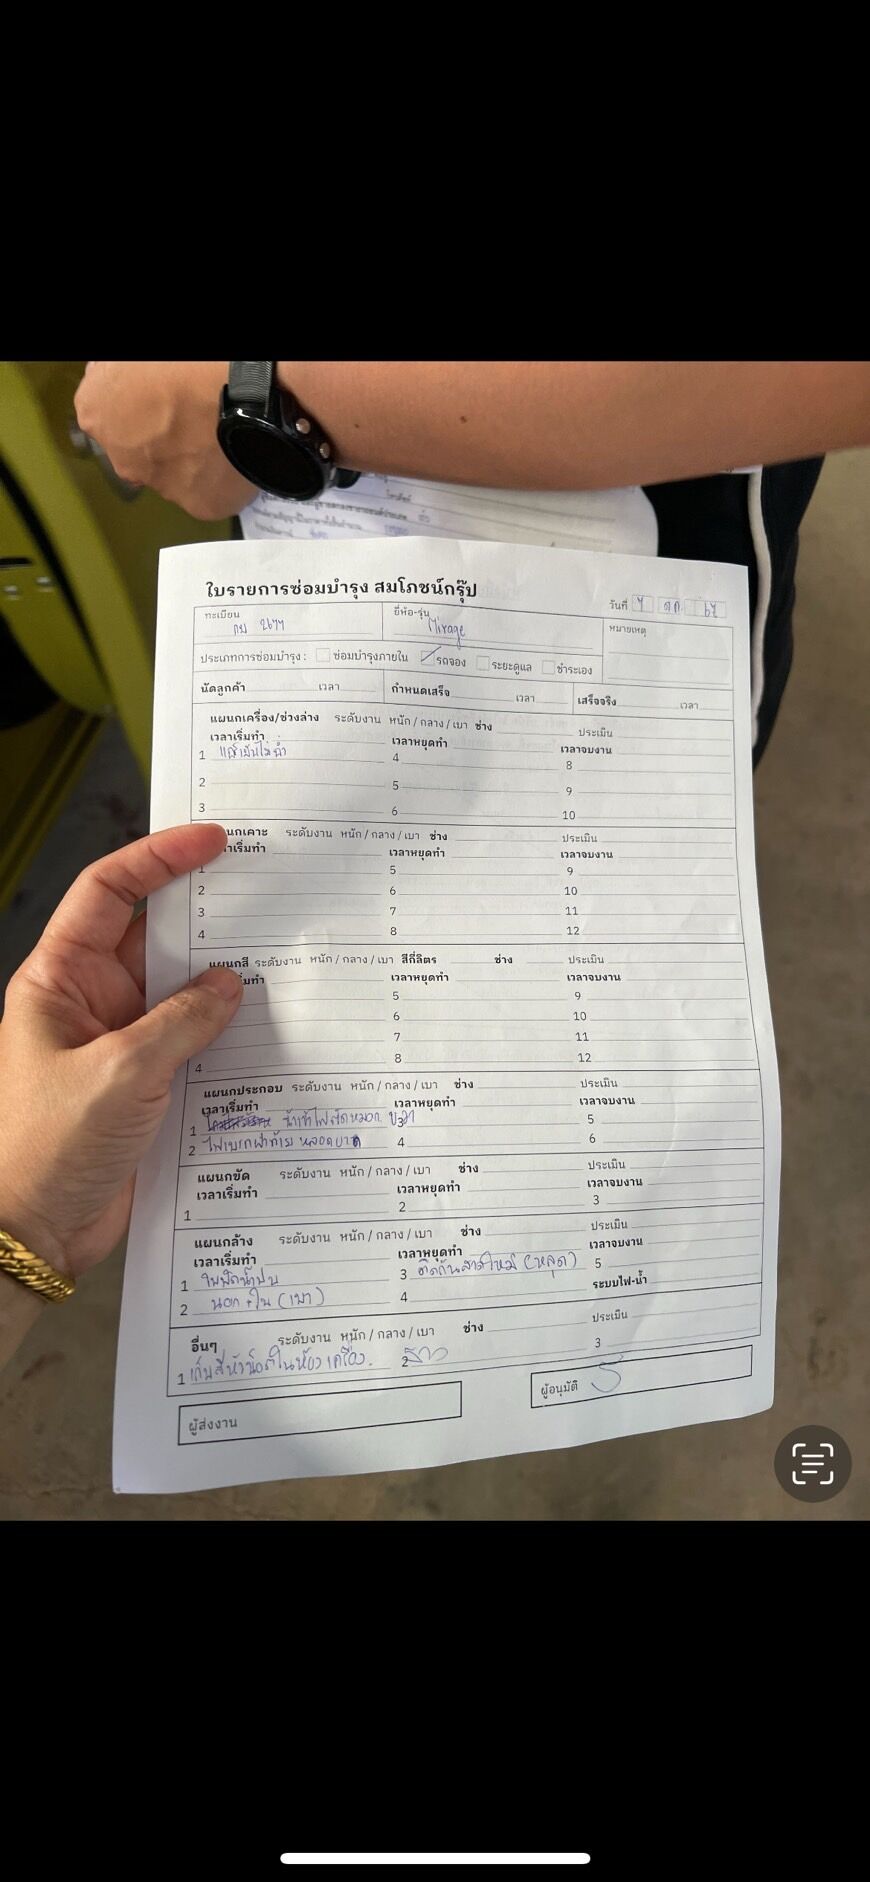 ใบรายการซ่อมบำรุง สมโภชน์กรุ๊ป
วันที่ ต.ค. 67
ทะเบียน ยี่ห้อ-รุ่น หมายเหตุ
Mirage
ประเภทการซ่อมบำรุง : ซ่อมบำรุงภายใน รถจอง ระยะดูแล ชำระเอง
นัดลูกค้า เวลา กำหนดเสร็จ เวลา เสร็จจริง เวลา
แผนกเครื่อง/ช่วงล่าง ระดับงาน หนัก / กลาง / เบา ช่าง ประเมิน
เวลาเริ่มทำ เวลาหยุดทำ เวลาจบงาน
1 แอร์เย็นไม่ฉ่ำ 4 8
2 5 9
3 6 10
นกเคาะ ระดับงาน หนัก / กลาง / เบา ช่าง ประเมิน
าเริ่มทำ เวลาหยุดทำ เวลาจบงาน
1 5 9
2 6 10
3 7 11
4 8 12
แผนกสี ระดับงาน หนัก / กลาง / เบา สีกี่ลิตร ช่าง ประเมิน
ริ่มทำ เวลาหยุดทำ เวลาจบงาน
5 9
6 10
7 11
4 8 12
แผนกประกอบ ระดับงาน หนัก / กลาง / เบา ช่าง ประเมิน
เวลาเริ่มทำ เวลาหยุดทำ เวลาจบงาน
1 น้ำเข้าไฟตัดหมอก ขวา 5
2 ไฟเบรกฝาท้าย หลอดขาด 4 6
แผนกขัด ระดับงาน หนัก / กลาง / เบา ช่าง ประเมิน
เวลาเริ่มทำ เวลาหยุดทำ เวลาจบงาน
1 2 3
แผนกล้าง ระดับงาน หนัก / กลาง / เบา ช่าง ประเมิน
เวลาเริ่มทำ เวลาหยุดทำ เวลาจบงาน
1 ใบปัดน้ำฝน 3 ติดกันสาดใหม่ (หลุด) 5
2 นอก + ใน (เบา) 4 ระบบไฟ-น้ำ
อื่นๆ ระดับงาน หนัก / กลาง / เบา ช่าง ประเมิน
1 เก็บสีหัวน็อตในห้องเครื่อง. 2 3
ผู้ส่งงาน ผู้อนุมัติ